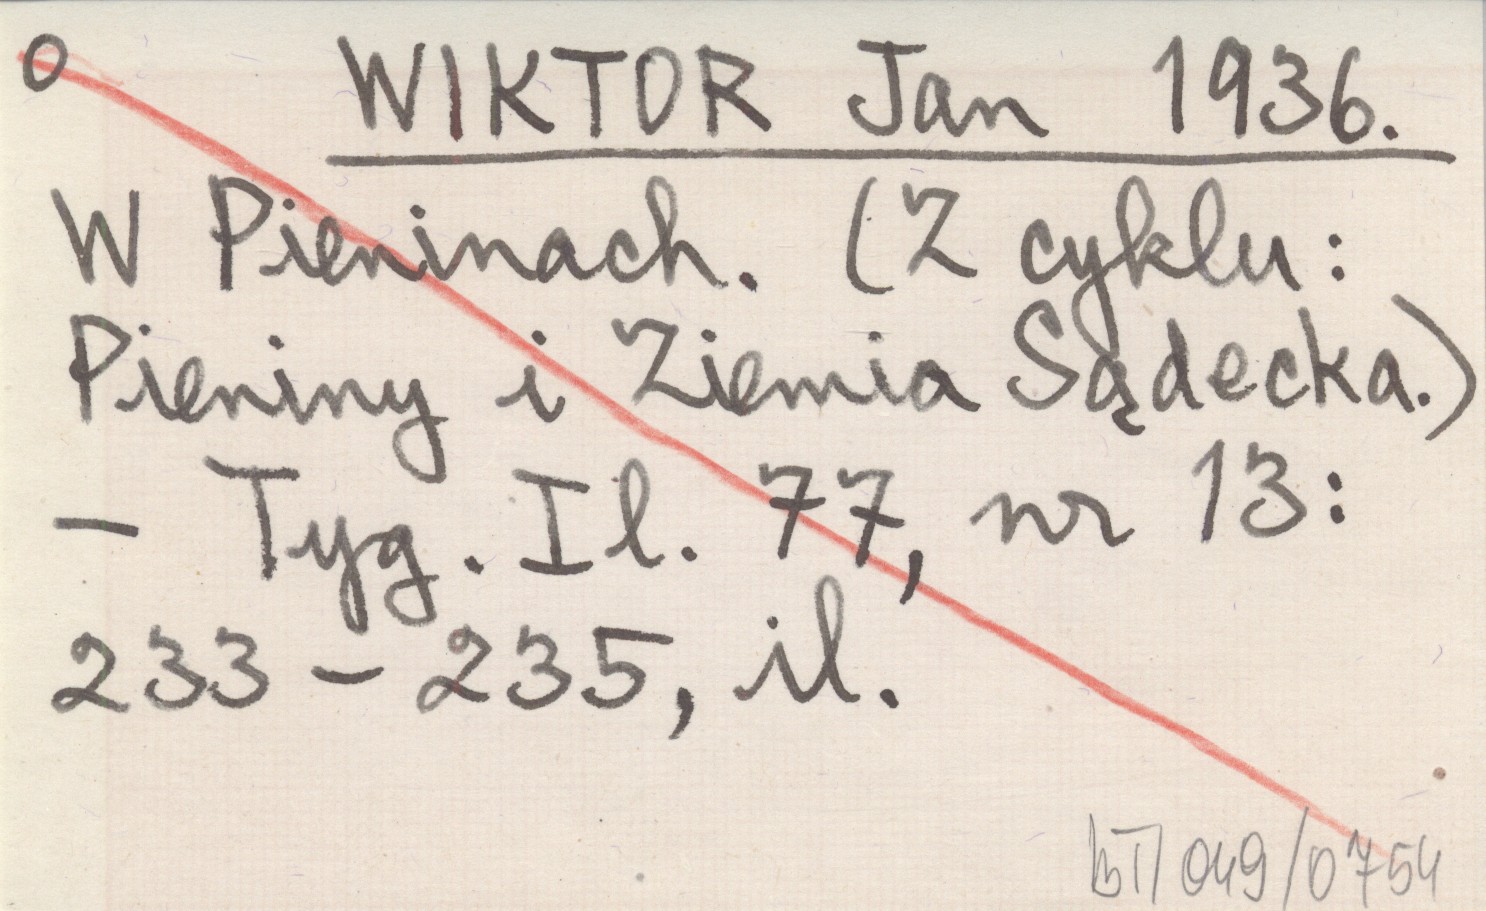 O
WIKTOR Jan 1936.
W Pieninach. (Z cyklu:
Pieniny i Ziemia Sądecka.)
- Tyg. Il. 77, nr 13:
233 - 235, il.
049/0754